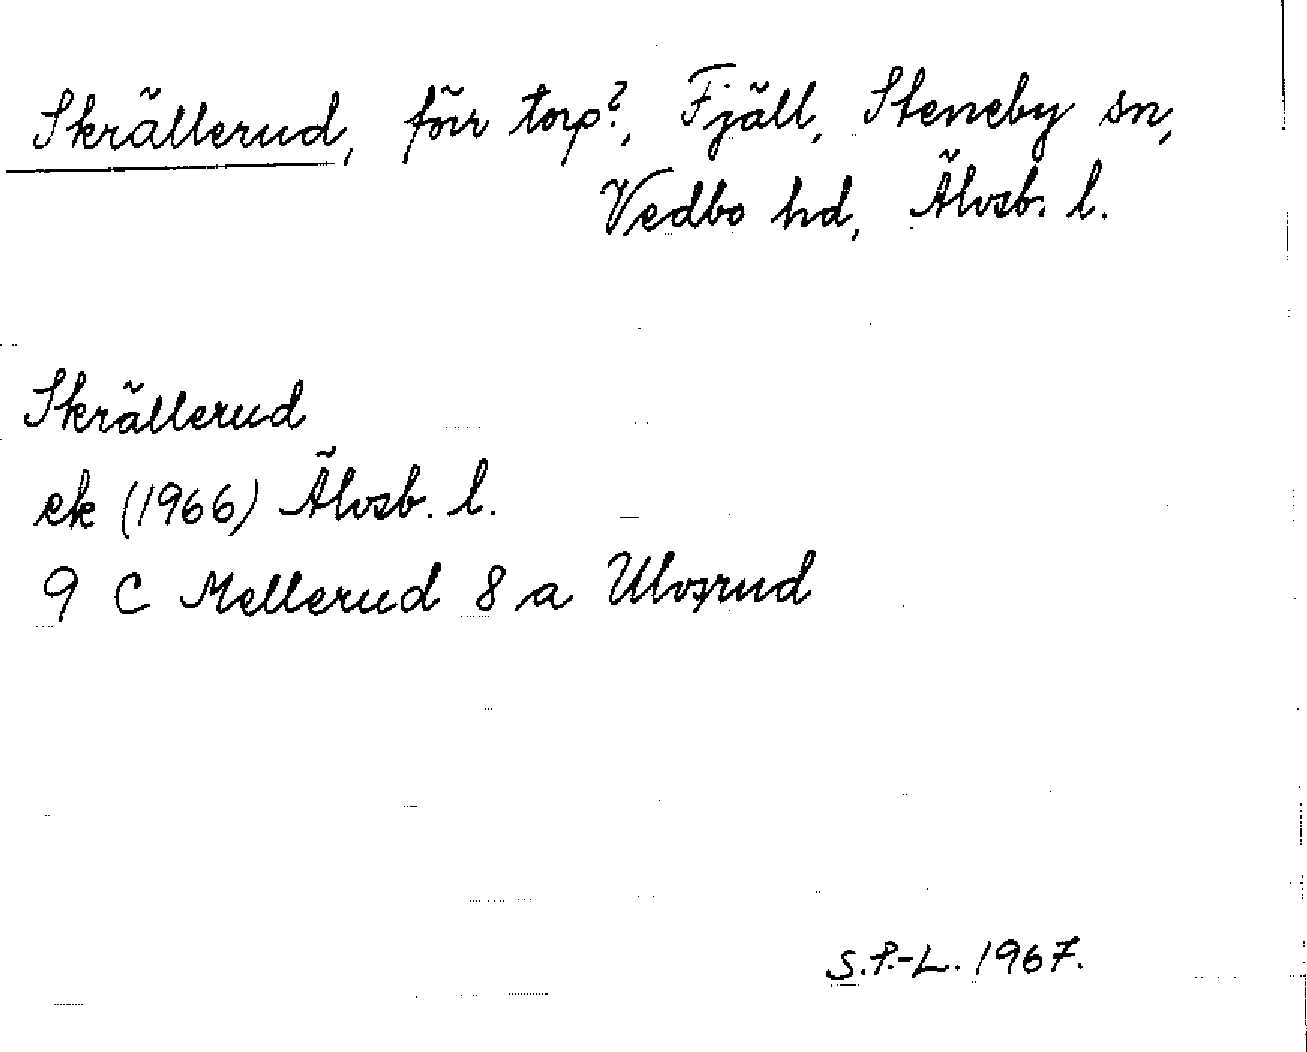 Skrällerud, förr torp?, Fjäll, Steneby sn,
Vedbo hd, Älvsb. l.
Skrällerud
ek (1966) Älvsb. l.
9 C Mellerud 8 a Ulvsrud
S.P.-L. 1967.